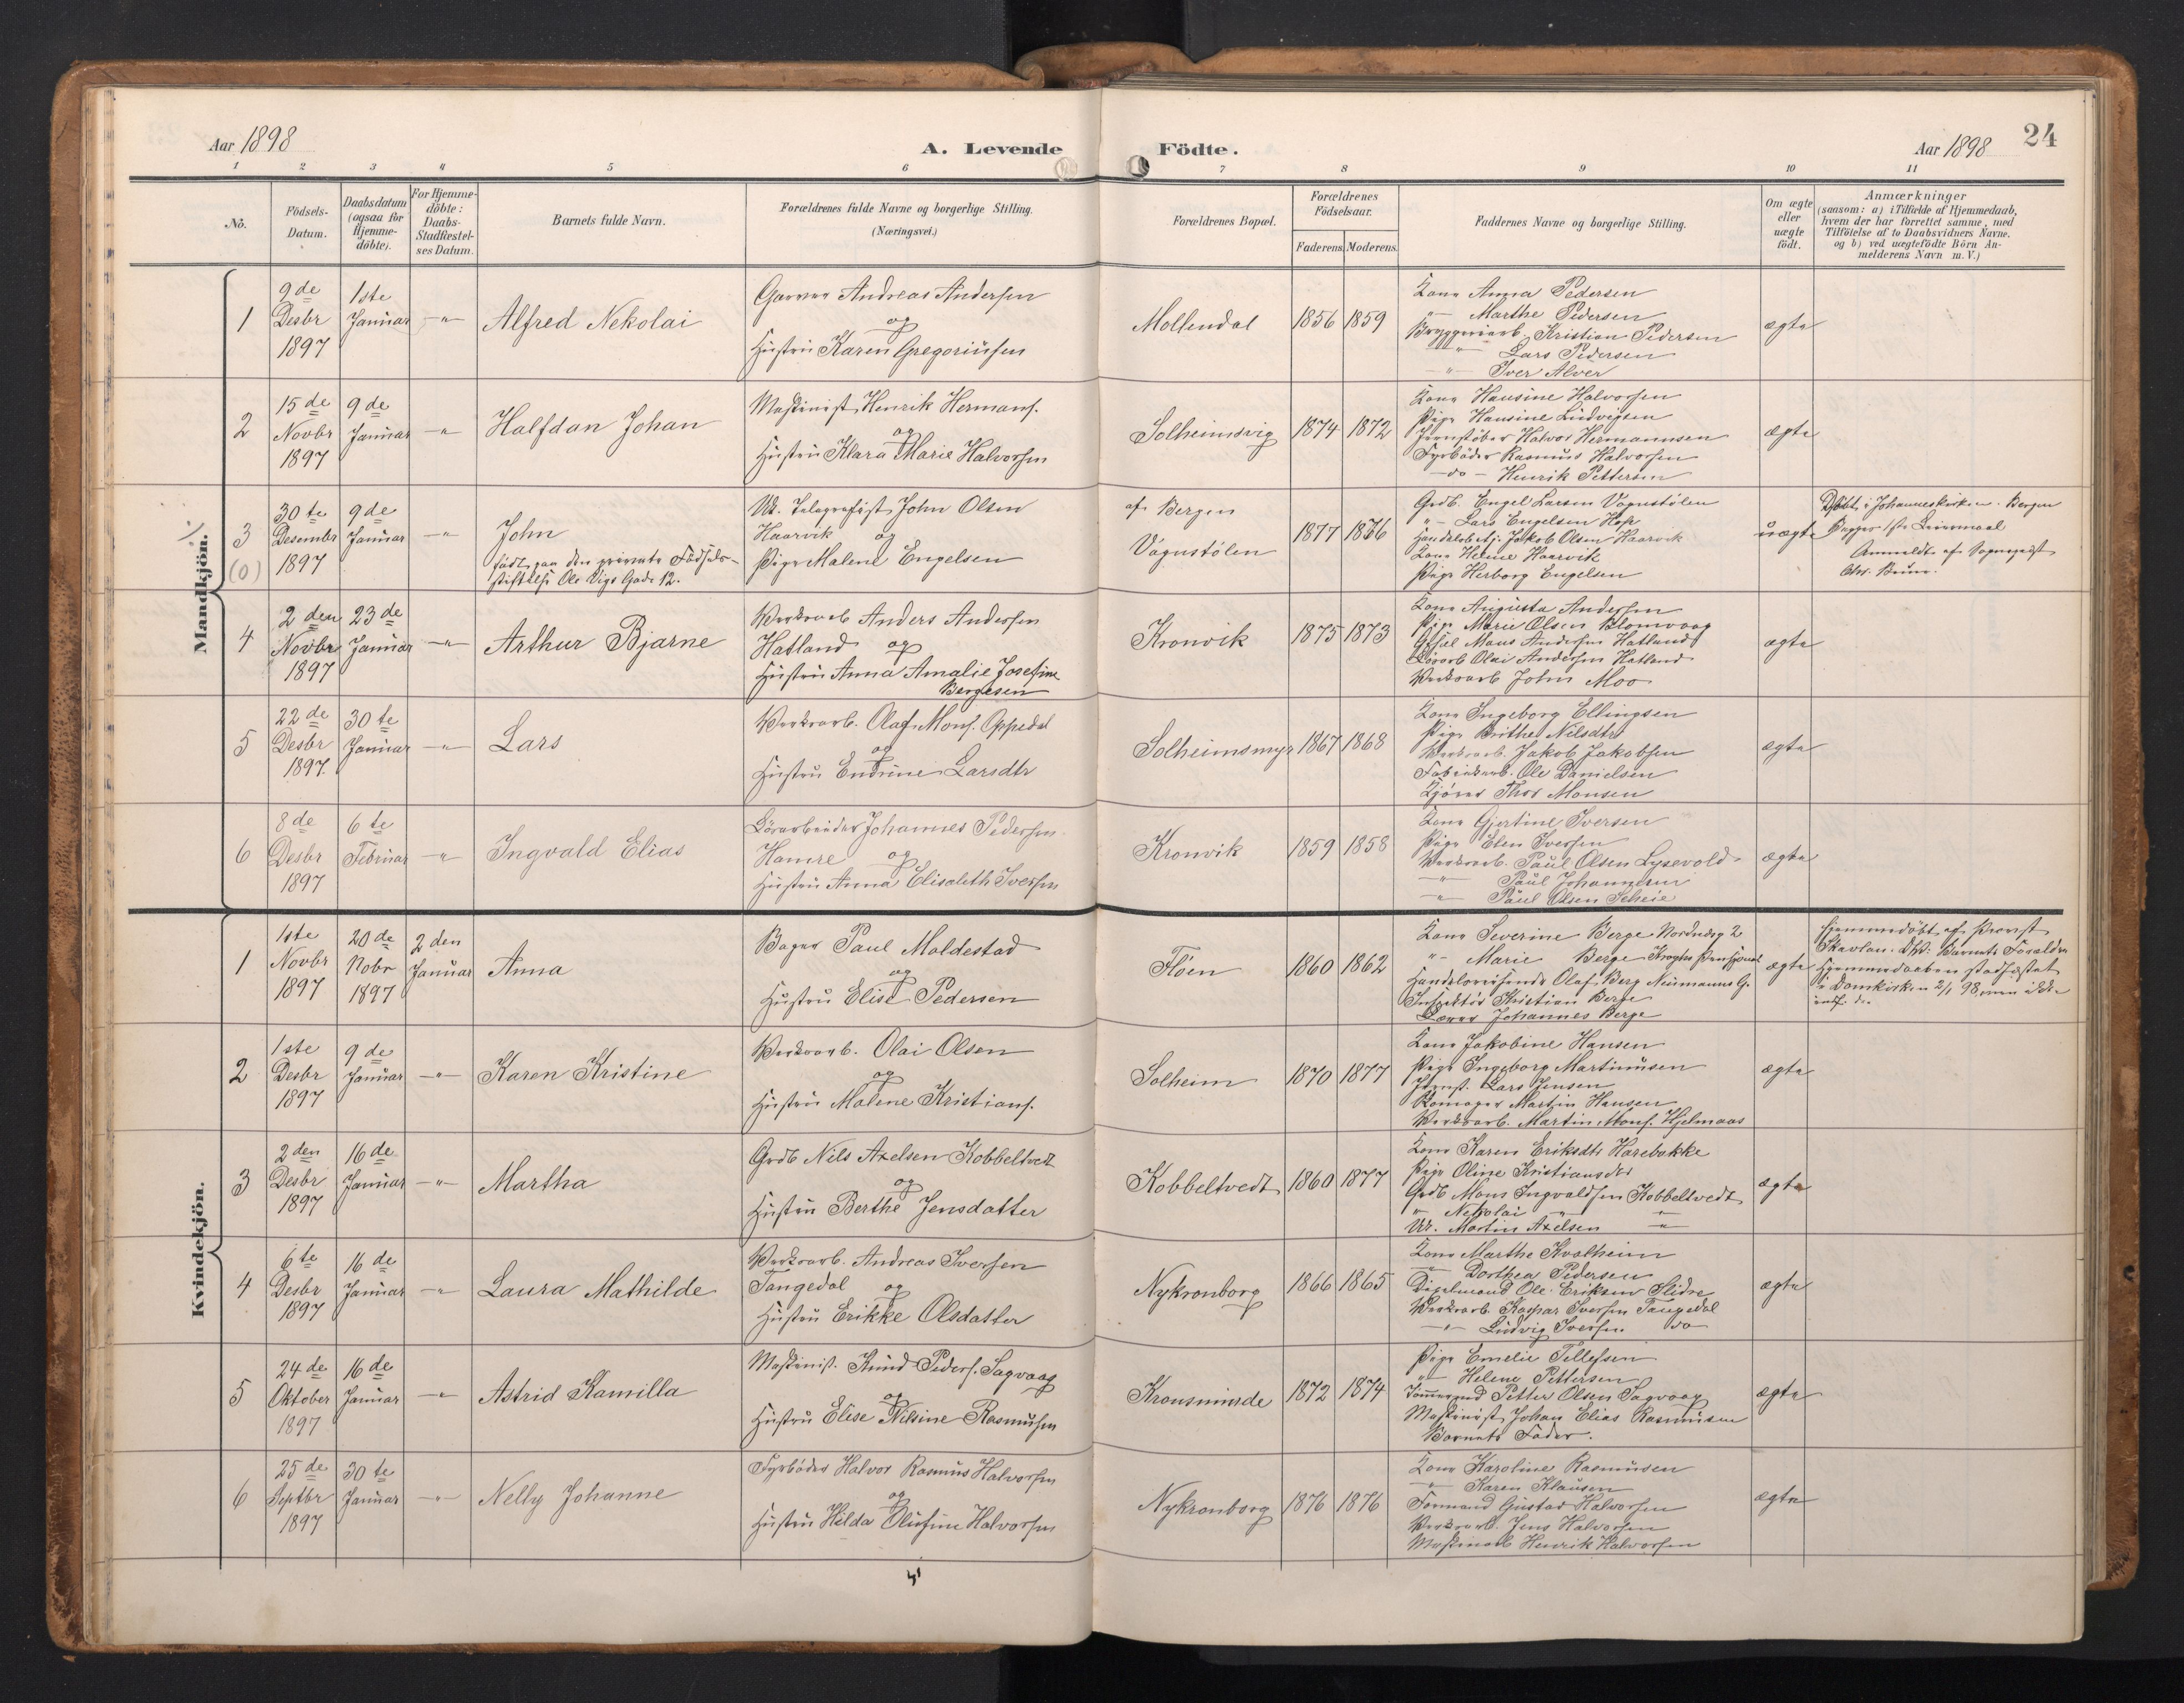 Aar 1898
A. Levende
1 2 3 4 5 6
No.
Födsels-Datum.
Daabsdatum (ogsaa for Hjemme-döbte).
For Hjemme-döbte: Daabs-Stadfæstel-ses Datum.
Barnets fulde Navn.
Forældrenes fulde Navne og borgerlige Stilling.
(Næringsvei.)
Mandkjön.
1 9de Desbr 1897 1ste Januar -"- Alfred Nekolai
Garver Andreas Andersen
og
Hustru Karen Gregoriusen
2 15de Novbr 1897 9de Januar -"- Halfdan Johan
Maskinist Henrik Hermans.
og
Hustru Klara Marie Halvorsen
3 (0) 30te Desember 1897 9de Januar -"- John
født paa den private Fødsels-
stiftelse Ole Vigs Gade 12.
Uk. Telegrafist John Olsen
Haarvik og
Pige Malene Engelsen
4 2den Novbr 1897 23de Januar -"- Arthur Bjarne
Verksarb Anders Andersen
Hatland og
Hustru Anna Amalie Josefine
Bergesen
5 22de Desbr 1897. 30te Januar -"- Lars
Verksarb. Olaf Mons. Oppedal
og
Hustru Endrine Larsdtr
6 8de Desbr 1897 6te Februar -"- Ingvald Elias
Lörarbeider Johannes Pedersen
Hamre og
Hustru Anna Elisabeth Iversen
Kvindekjön.
1 1ste Novbr 1897 20de Nobr 1897 2den Januar Anna
Bager Paul Moldestad
og
Hustru Elise Pedersen
2 1ste Desbr 1897 9de Januar -"- Karen Kristine
Verksarb. Olai Olsen
og
Hustru Malene Kristians.
3 2den Desbr 1897 16de Januar -"- Martha
Grdb Nils Axelsen Kobbeltvedt
og
Hustru Berthe Jensdatter
4 6te Desbr 1897 16de Januar -"- Laura Mathilde
Verksarb. Andreas Iversen
Tangedal og
Hustru Erikke Olsdatter
5 24de Oktober 1897 16de Januar -"- Astrid Kamilla
Maskinist. Knud Peders. Sagvaag
og
Hustru Elise Nilsine Rasmusen
6 25de Septbr 1897 30te Januar -"- Nelly Johanne
Fyrböder Halvor Rasmus Halvorsen
og
Hustru Hilda Olufine Halvorsen
Födte.
Aar 1898
24
7 8 9 10 11
Forældrenes Bopæl.
Forældrenes Födselsaar.
Faderens. Moderens.
Faddernes Navne og borgerlige Stilling.
Om ægte eller uægte födt.
Anmærkninger
(saasom: a) i Tilfælde af Hjemmedaab,
hvem der har forrettet samme, med
Tilföielse af to Daabsvidners Navne.
og b) ved uægtefödte Börn An-
melderens Navn m. V.)
Mollendal 1856 1859
Kone Anna Pedersen
" Marthe Pedersen
Bryggeriarb. Kristian Pedersen
" Lars Pedersen
-"- Iver Alver
ægte
Solheimsvig 1874 1872
Kone Hansine Halvorsen
Pige Hansine Ludvigsen
Jernstöber Halvor Hermannsen
Fyrböder Rasmus Halvorsen
-do- Henrik Pettersen
ægte
af Bergen
Vågustölen 1877 1876
Grdb. Engel Larsen Vågustölen
"- Lars Engelsen Hope
Handelsbetj. Jakob Olsen Haarvik
Kone Helene Haarvik
Pige Herborg Engelsen
uægte
Döbt i Johanneskirken. Bergen
Begges 1ste Leiermaal
Anmeldt af Sognepræst
Chr. Bruun.
Kronvik 1875 1873
Kone Augusta Andersen
Pige Marie Olsen Blomvaag
Gesel Mons Andersen Hatland
Lörarb Olai Andersen Hatland
Verksarb John Moo
ægte
Solheimsmyr 1867 1868
Kone Ingeborg Ellingsen
Pige Brithe Nilsdtr
Verksarb. Jakob Jakobsen
Fabrikarb. Ole Danielsen
Kjörer Thor Monsen
ægte
Kronvik 1859 1858
Kone Gjertine Iversen
Pige Elen Iversen
Verksarb. Paul Olsen Lysevold
-"- Paul Johannesen
-"- Paul Olsen Scheie
ægte
Flöen 1860 1862
Kone Severine Berge Nordnæsg 2
"- Marie Berge Kroghs Pensjonat
Handelsreisende Olaf Berg Neumanns G.
Inspektör Kristian Berge
Lærer Johannes Berge
ægte
Hjemmedöbt af Provst
Skavlan. DV: Barnets Forældre
Hjemmedaaben stadfæstet
i Domkirken 2/1 98, men ikke
indf. der
Solheim 1870 1877
Kone Jakobine Hansen
Pige Ingeborg Martinusen
Jernst. Lars Jensen
Skomager Martin Hansen
Verksarb. Martin Mons. Hjelmaas
ægte
Kobbeltvedt 1860 1877
Kone Karen Eriksdtr Harebakke
Pige Oline Kristiansdtr
Grdb Mons Ingvaldsen Kobbeltvedt
" Nekolai " "
Uk. Martin Axelsen -"-
ægte
Nykronborg 1866 1865
Kone Marthe Kvalheim
"- Dorthea Pedersen
Ole Eriksen Slidre
Verksarb. Kaspar Iversen Tangedal
-"- Ludvig Iversen do
ægte
Kronsminde 1872 1874
Pige Emelie Tellefsen
"- Helene Pettersen
Tömmermd Petter Olsen Sagvaag
Maskinist Johan Elias Rasmusen
Barnets Fader.
ægte
Nykronborg 1876 1876
Kone Karoline Rasmusen
-"- Karen Klausen
Formand Gustav Halvorsen
Verksarb. Jens Halvorsen
Maskinarb Henrik Halvorsen
ægte